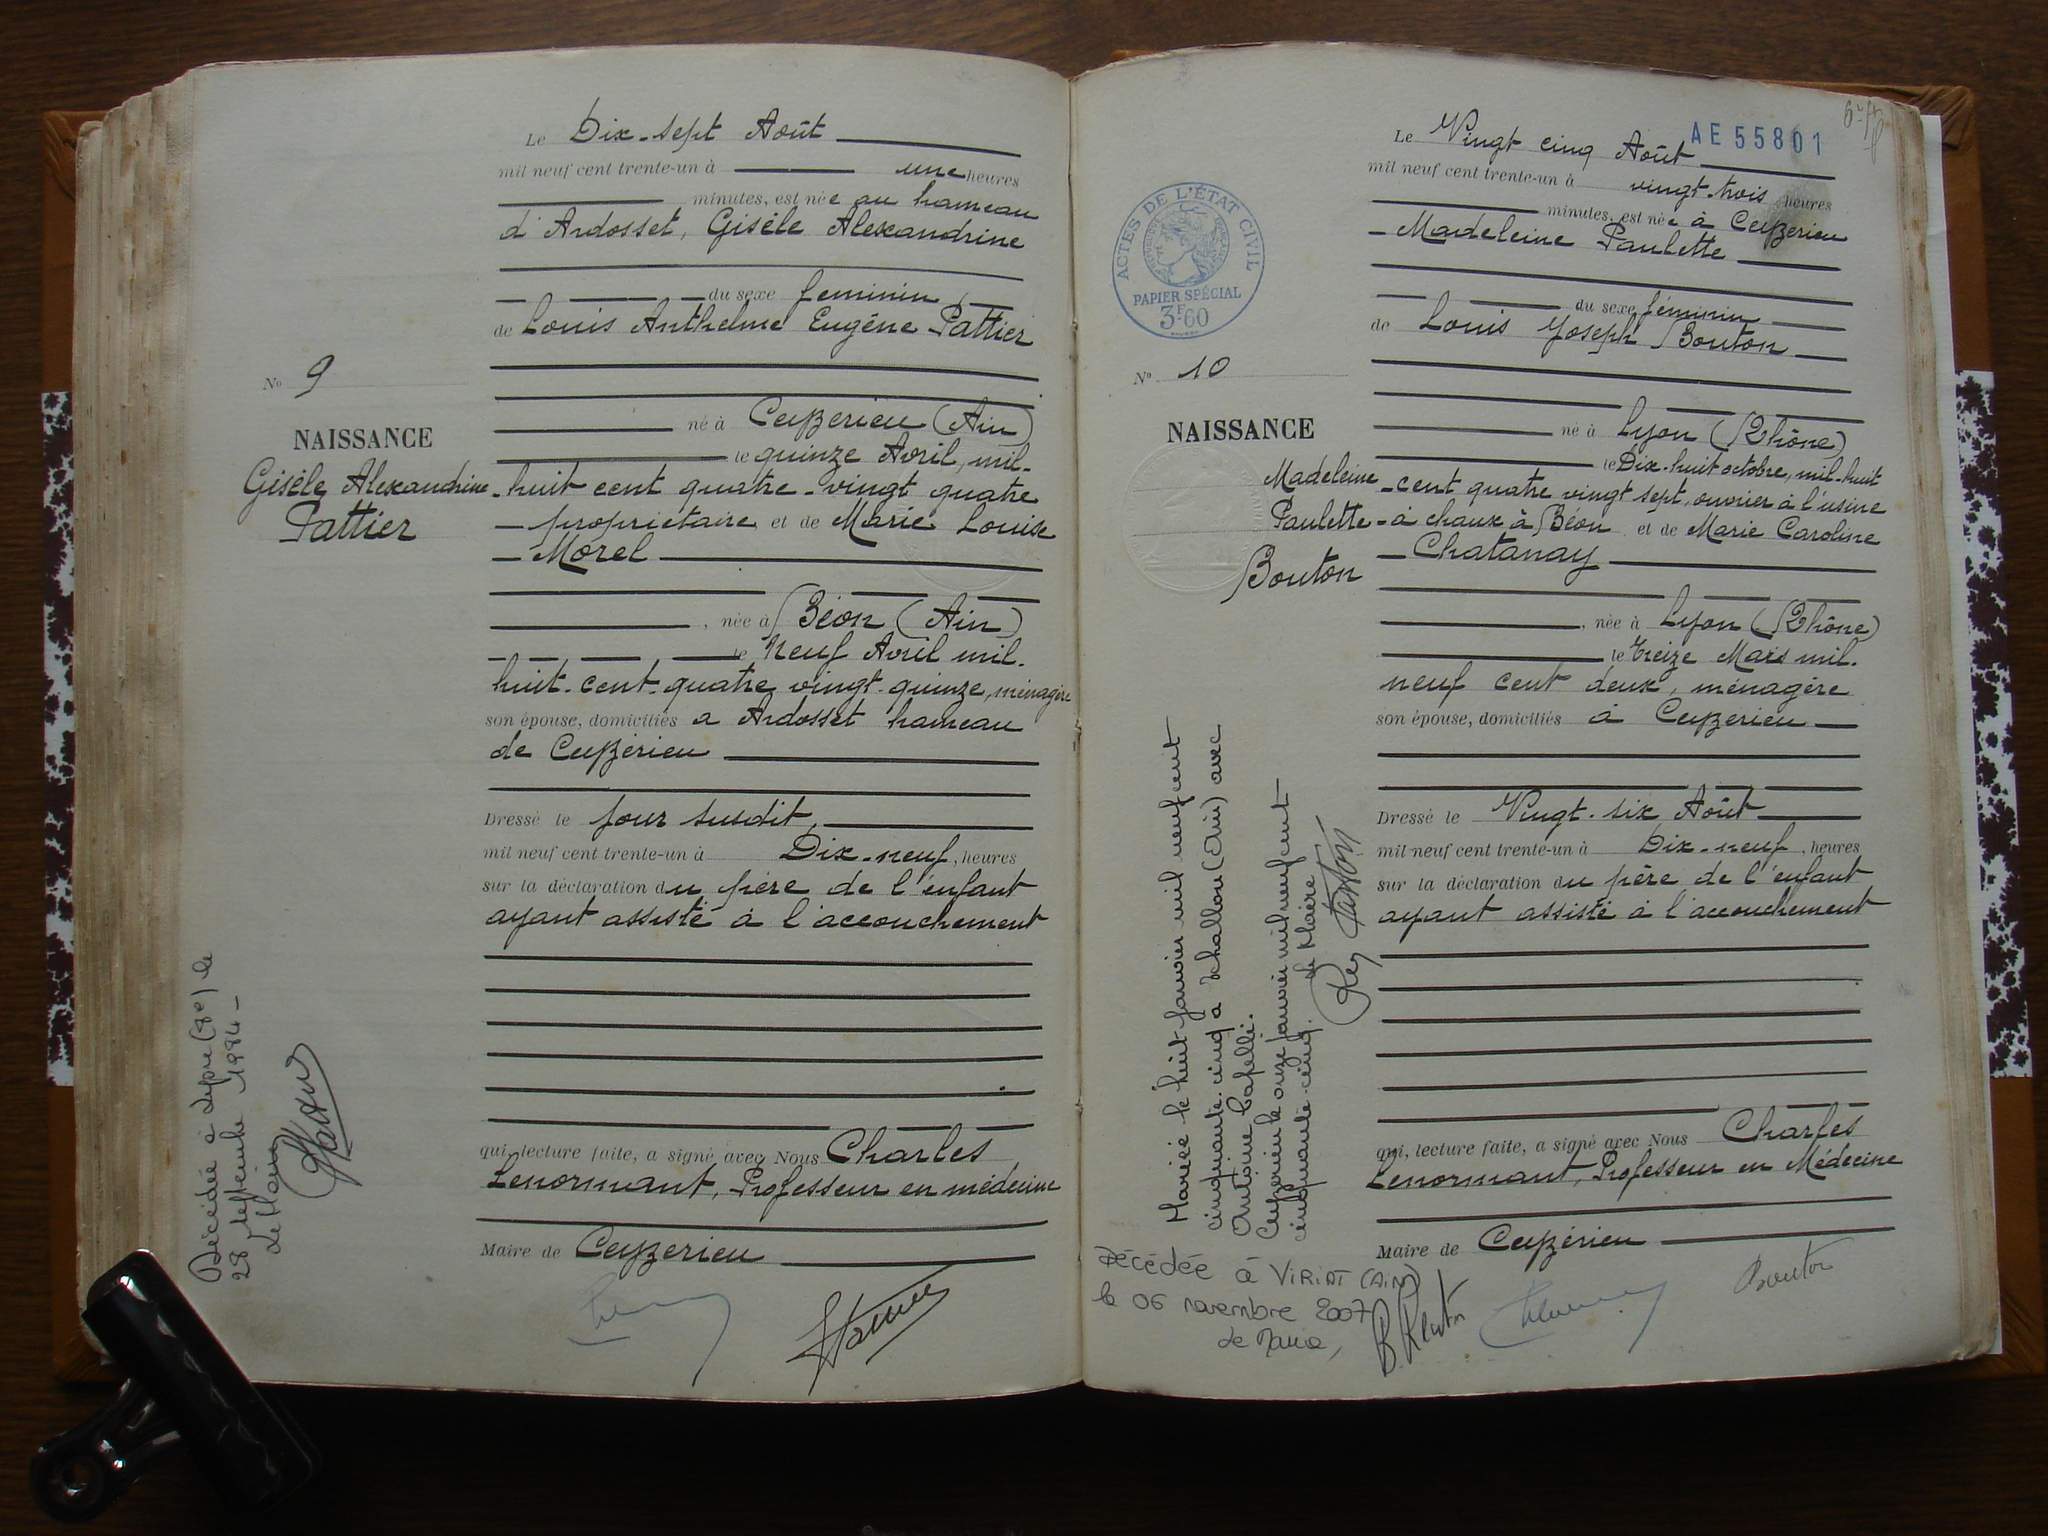 Le Dix-sept Août
mil neuf cent trente-un à une heures
minutes, est née au hameau
d'Ardosset, Gisèle Alexandrine
du sexe féminin
de Louis Anthelme Eugène Pattier
No 9
né à Ceyzerieu (Ain)
NAISSANCE
le quinze Avril, mil-
Gisèle Alexandrine
Pattier
huit cent quatre-vingt quatre
propriétaire et de Marie Louise
Morel
, née à Béon (Ain)
le Neuf Avril mil.
huit-cent-quatre vingt-quinze, ménagère
son épouse, domiciliés a Ardosset hameau
de Ceyzérieu
Dressé le jour susdit,
mil neuf cent trente-un à Dix-neuf, heures
sur la déclaration du père de l'enfant
ayant assisté à l'accouchement
qui, lecture faite, a signé avec Nous Charles
Lenormant, Professeur en médecine
Maire de Ceyzerieu
Décédée à Lyon (8e) le
28 septembre 1984 -
Le Maire
AE 55801
Le Vingt cinq Août
mil neuf cent trente-un à vingt-trois heures
minutes, est née à Ceyzerieu
Madeleine Paulette
ACTES DE L'ÉTAT CIVIL
PAPIER SPÉCIAL
3F60
du sexe féminin
de Louis Joseph Bouton
No 10
né à Lyon (Rhône)
NAISSANCE
le Dix-huit octobre, mil-huit
Madeleine
Paulette
Bouton
cent quatre vingt sept, ouvrier à l'usine
à chaux à Béon et de Marie Caroline
Chatanay
, née à Lyon (Rhône)
le Treize Mars mil.
neuf cent deux, ménagère
son épouse, domiciliés à Ceyzerieu
Dressé le Vingt-six Août
mil neuf cent trente-un à Dix-neuf, heures
sur la déclaration du père de l'enfant
ayant assisté à l'accouchement
qui, lecture faite, a signé avec Nous Charles
Lenormant, Professeur en Médecine
Maire de Ceyzérieu
Bouton
Mariée le huit janvier mil neuf cent
cinquante-cinq à (Ain) avec
Antoine Capelli.
Ceyzerieu le onze janvier mil neuf cent
cinquante-cinq. Le Maire
Décédée à VIRIAT (AIN)
le 06 novembre 2007
Le Maire,